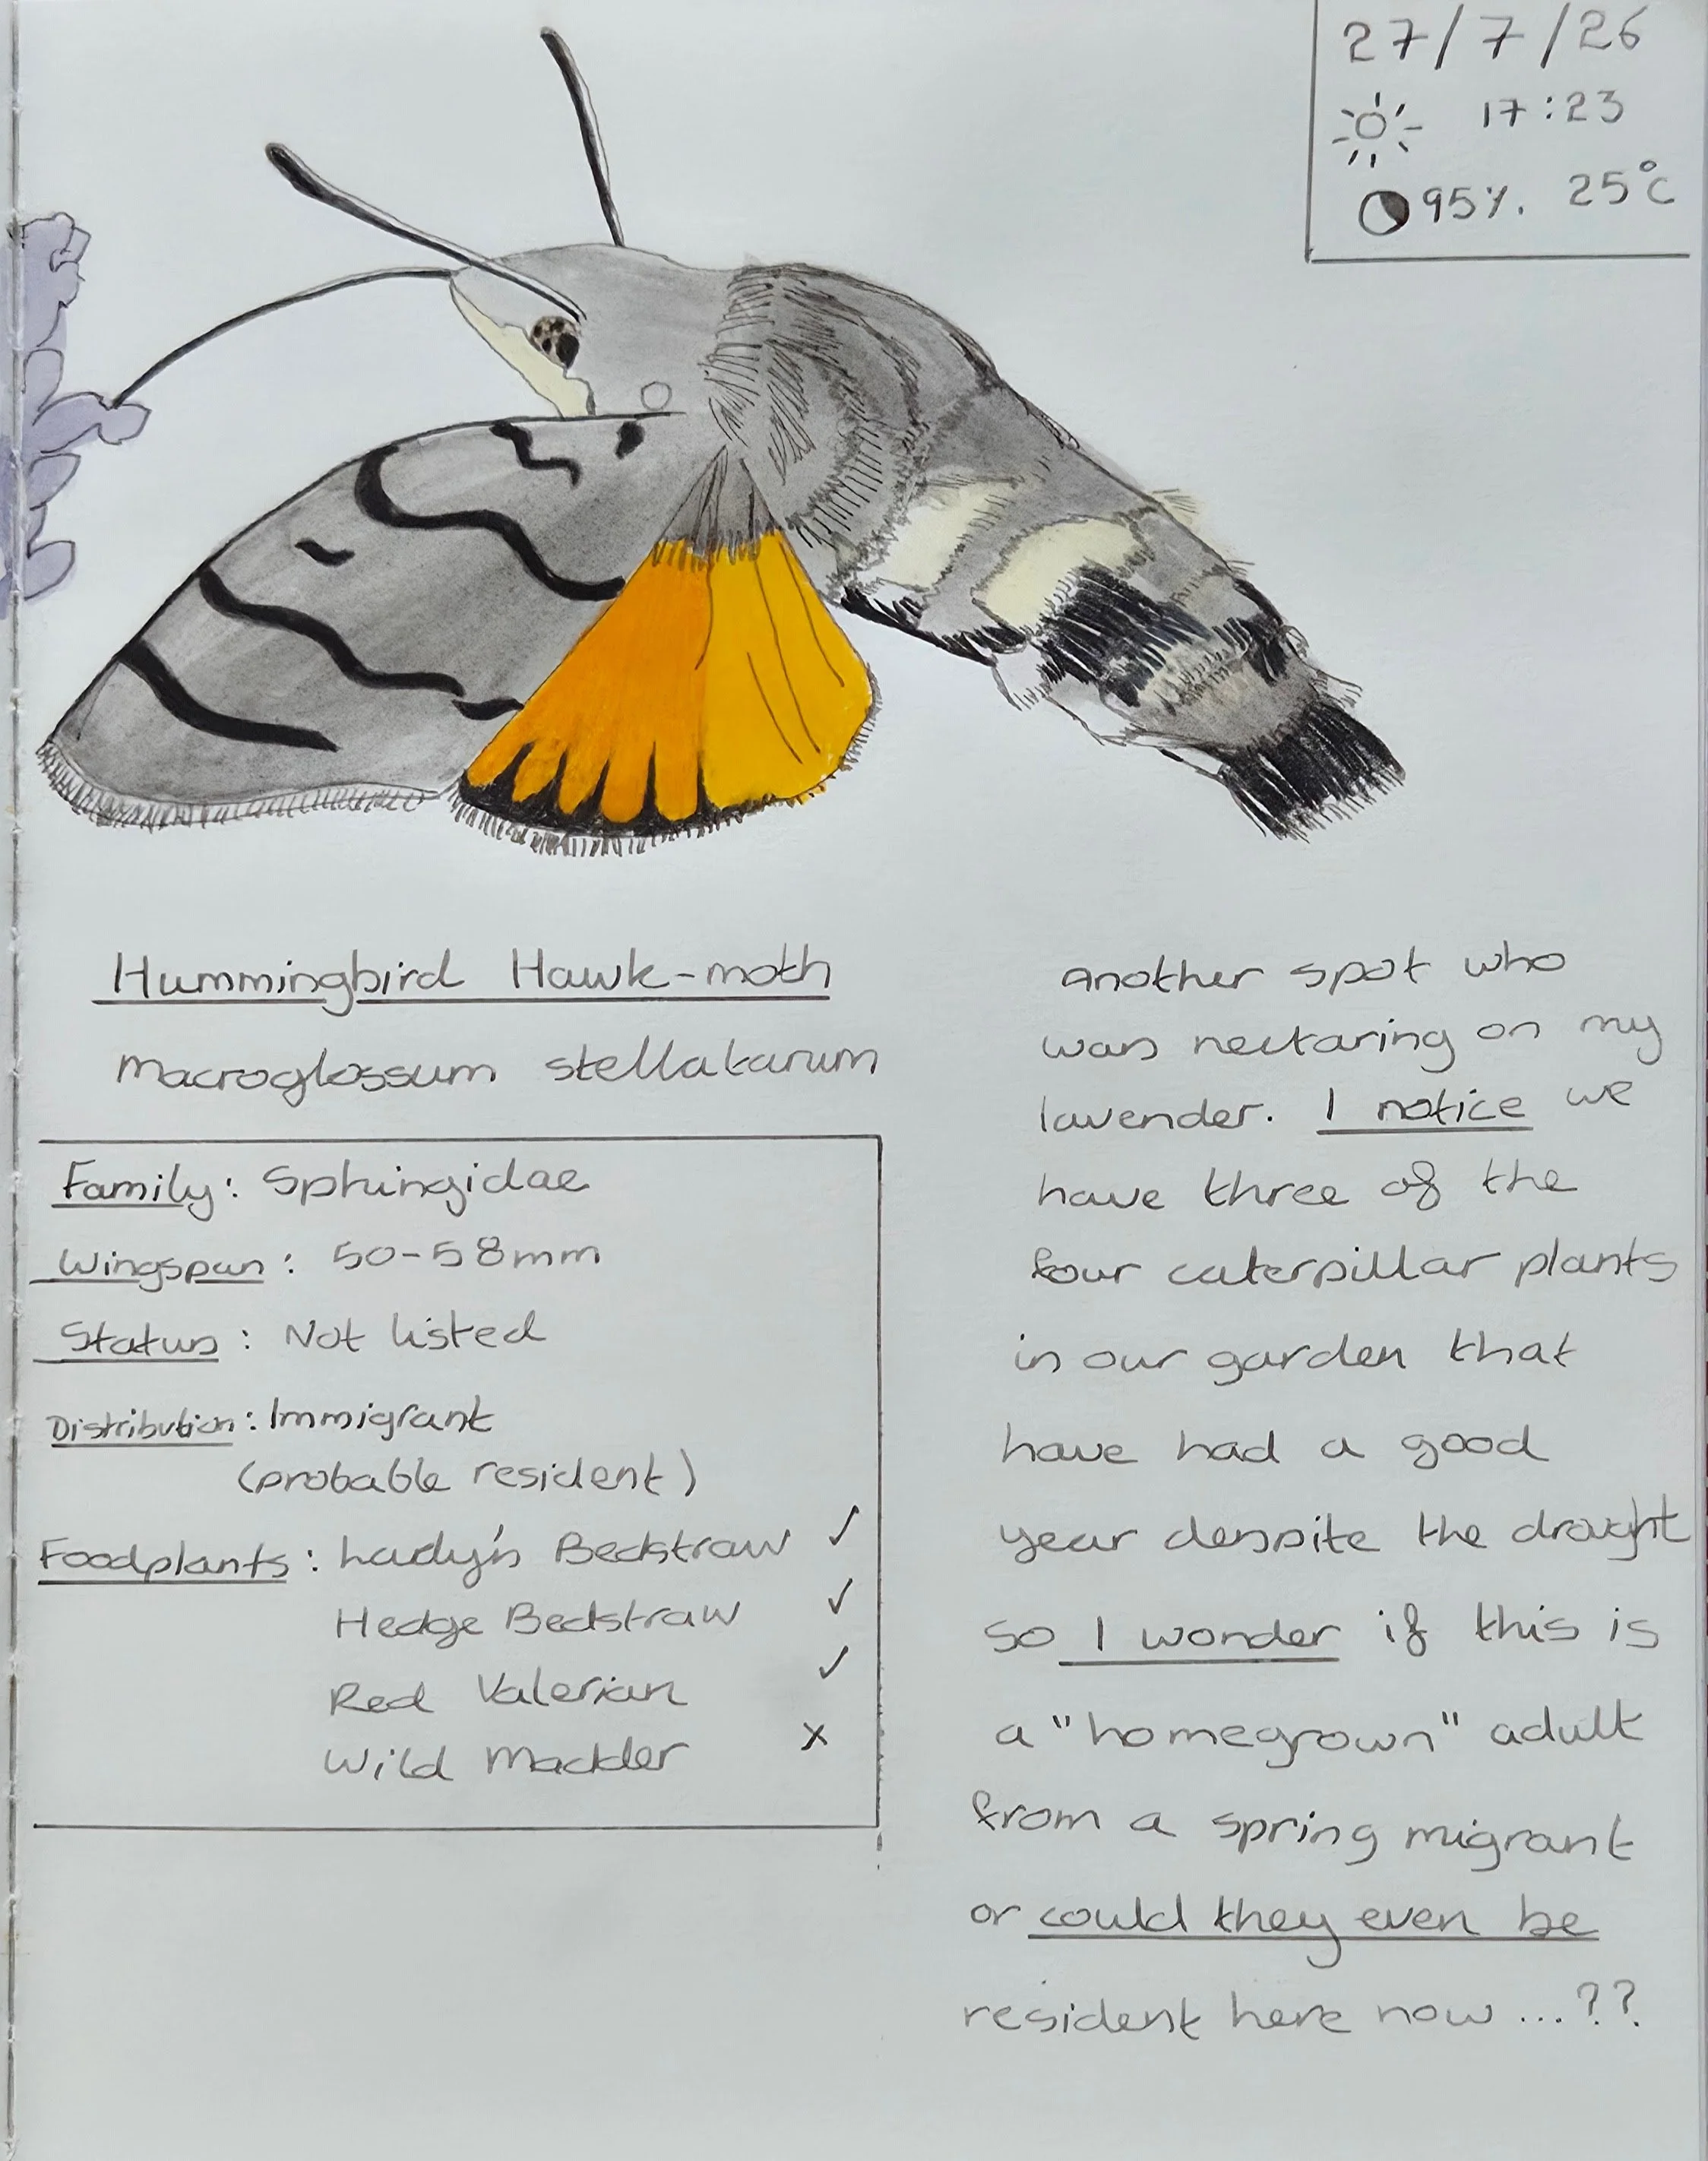 27/7/26
17:23
95%. 25°C
Hummingbird Hawk-moth
Macroglossum stellatarum
Family: Sphingidae
Wingspan: 50-58mm
Status: Not listed
Distribution: Immigrant
(probable resident)
Foodplants: Lady's Bedstraw ✓
Hedge Bedstraw ✓
Red Valerian ✓
Wild Madder x
Another spot who
was nectaring on my
lavender. I notice we
have three of the
four caterpillar plants
in our garden that
have had a good
year despite the drought
so I wonder if this is
a "homegrown" adult
from a spring migrant
or could they even be
resident here now...??